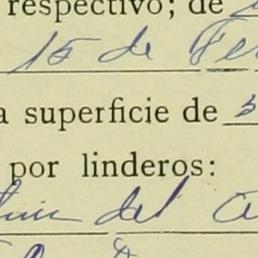 respectivo; de
15 de Fe
a superficie de
por linderos:
del